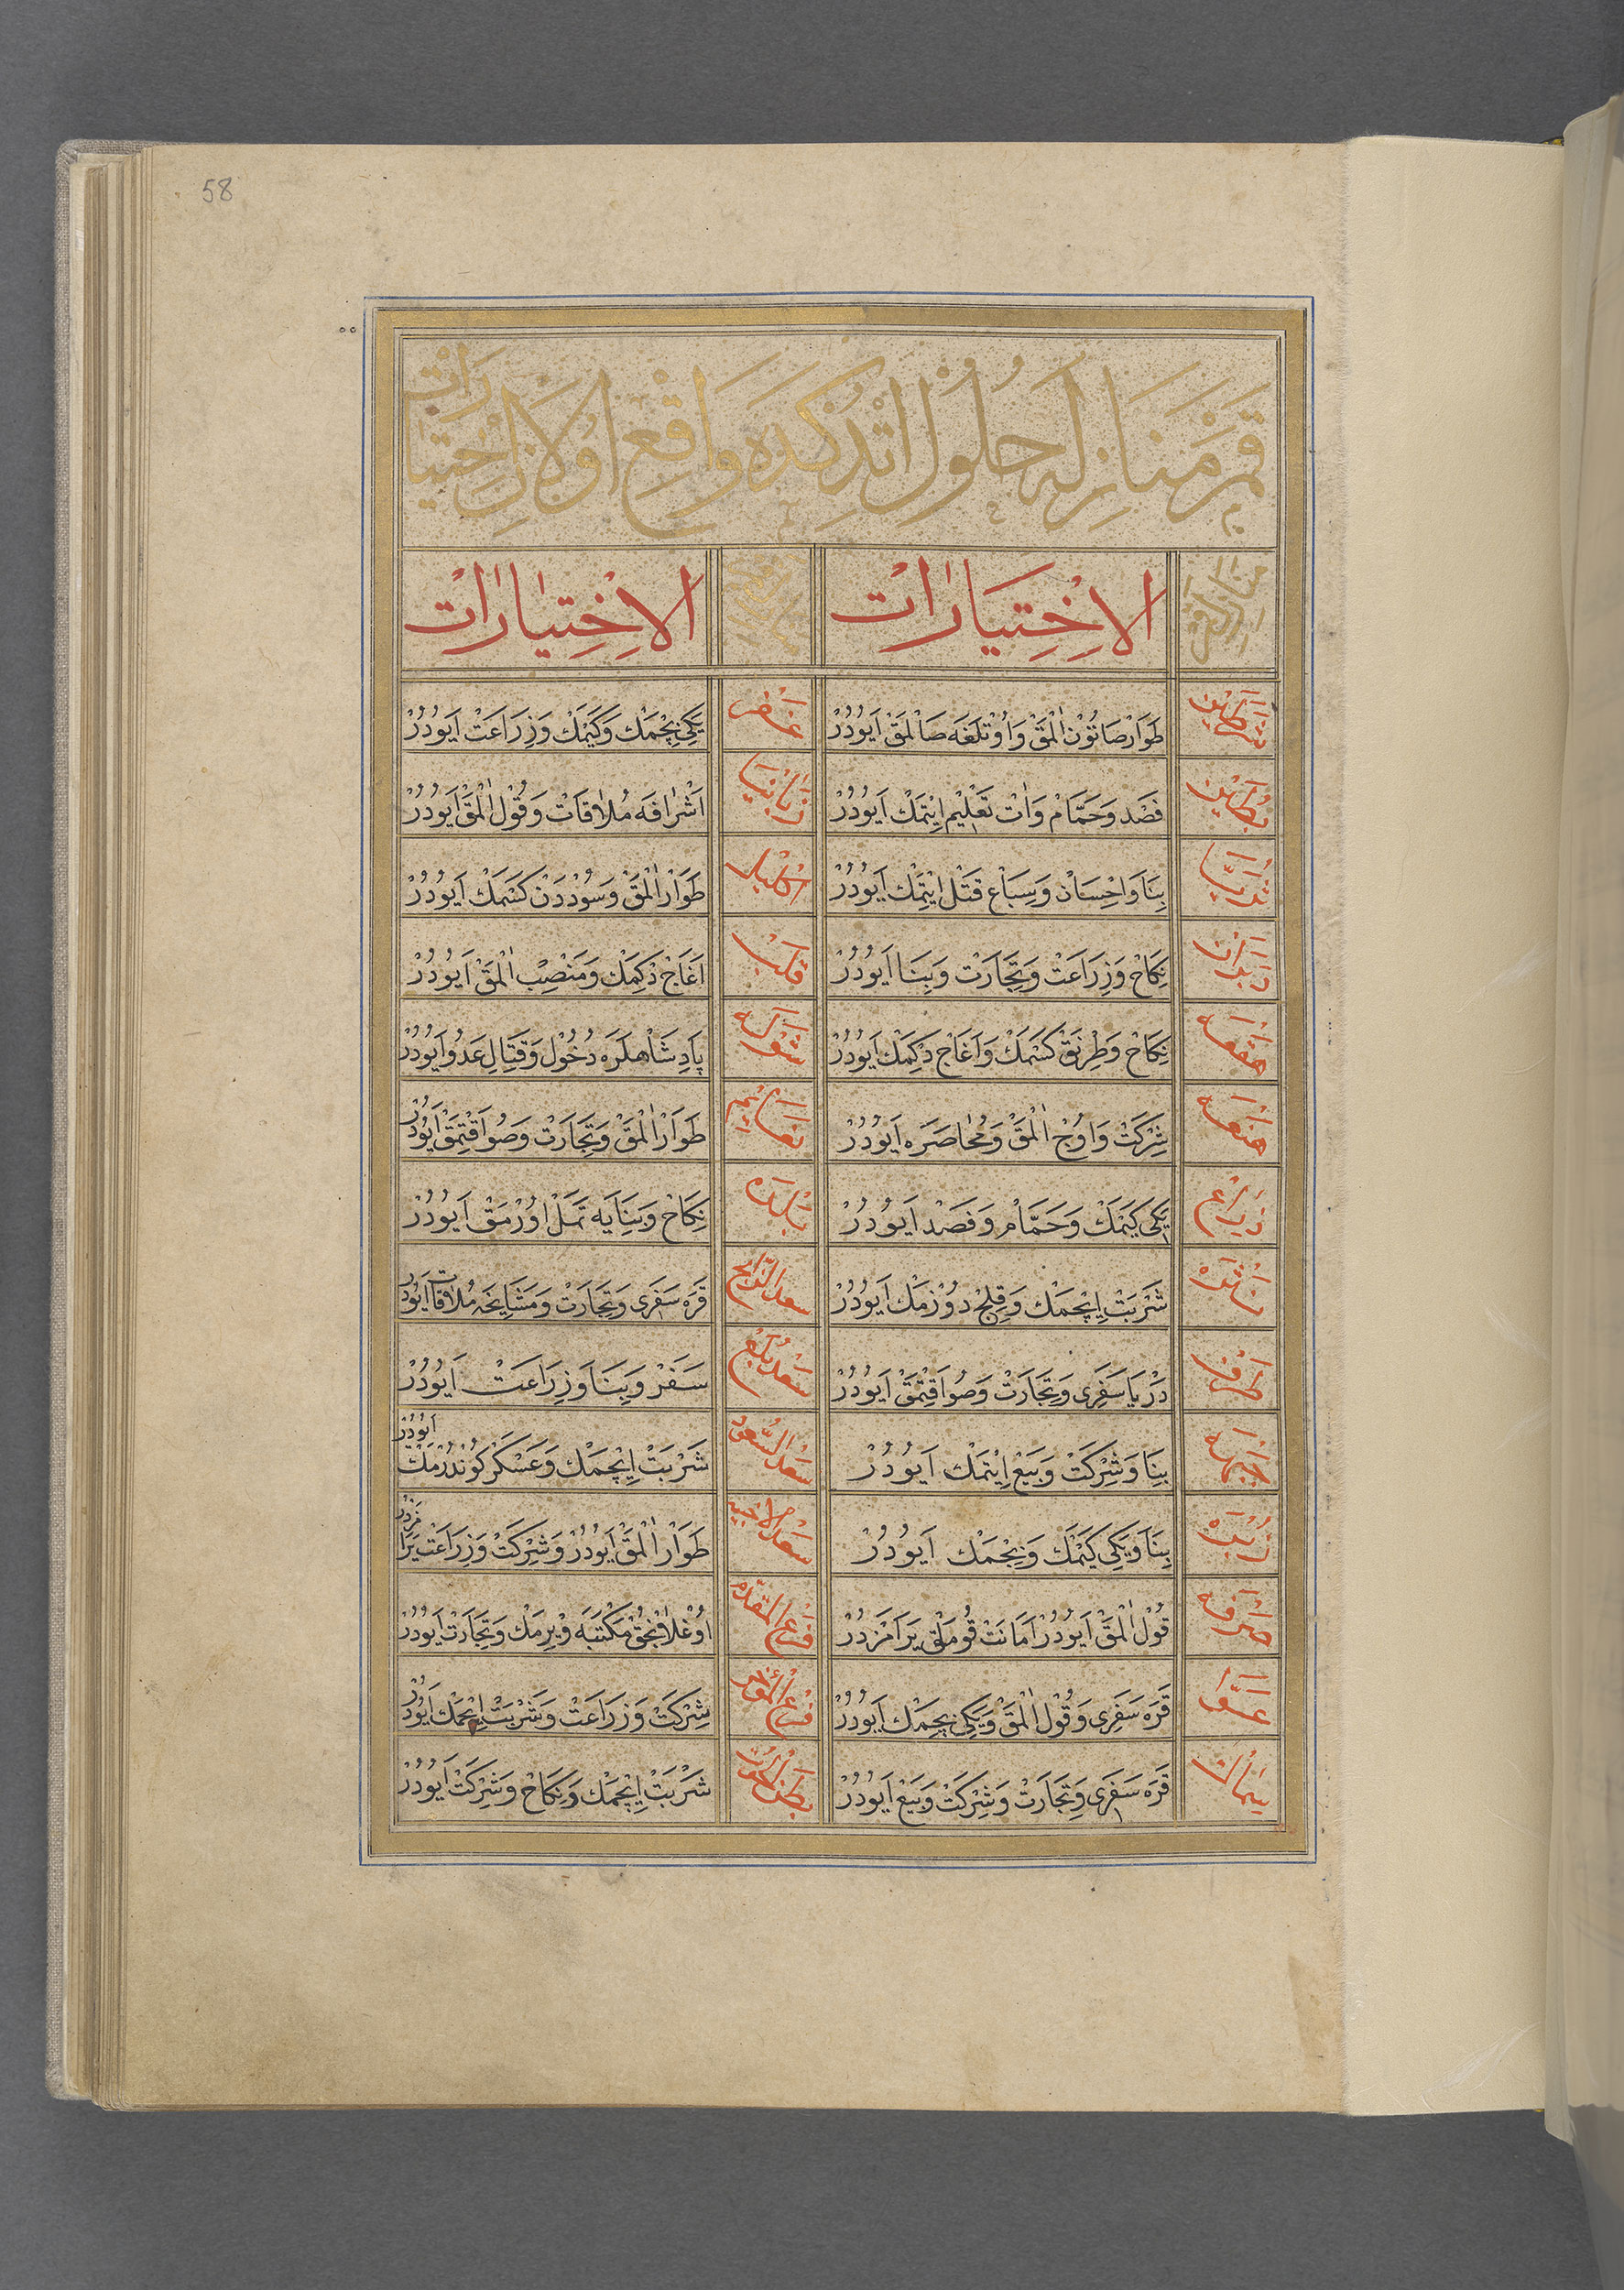 58
قَمَرْ مَنَازِلَه حُلُولْ اتْدُكْدَه وَاقِعْ اوُلَانْ اِخْتِيَارَاتْ
منازل القمر
الاِخْتِيَارَاتْ
منازل القمر
الاِخْتِيٰارٰاتْ
شرطين
طَوَارْ صَاتُونْ اٰلْمَقْ وَاُوْتْلَغَه صَالْمَقْ اَيُودُرْ
غفر
يَكِى بِچْمَكْ وَكَيْمَكْ وَزِرَاعَتْ اَيُودُرْ
بطين
فَصْد وَحَمَّامْ وَاٰتْ تَعْلِيْم اِيْتمَكْ اَيُودُرْ
زبانيا
اَشْرَافَه مُلَاقَاتْ وَقُوْل اٰلْمَقْ اَيُودُرْ
ثريا
بِنَا وَاحْسَانْ وَسِبَاعْ قَتْل ايْتِمَكْ اَيُودُرْ
اكليل
طَوَارْ اٰلْمَقْ وَسُوْددَنْ كَسْمَكْ اَيُودُرْ
دبران
نِكَاحْ وَزِرَاعَتْ وَتِجَارَتْ وَبِنَا اَيُودُرْ
قلب
اَغَاجْ دِكمَكْ وَمَنْصِبْ اٰلْمَقْ اَيُودُرْ
هقعه
نِكَاحْ وَطِرْنَقْ كَسْمَكْ وَاَغَاجْ دِكمَكْ اَيُودُرْ
شوله
پَادِشَاهلَرَه دُخُوْل وَقِتَالِ عَدُو اَيُودُرْ
هنعه
شِرْكَتْ وَاوُجْ اٰلْمَقْ وَمُحَاصَرَه اَيُودُرْ
نعايم
طَوَارْ اٰلْمَقْ وَتِجَارَتْ وَصُو اَقِتْمَقْ اَيُودُرْ
ذراع
يَكِى كَيْمَكْ وَحَمَّامْ وَفَصْد اَيُودُرْ
بلده
نِكَاحْ وَبِنَايَه تَمَلْ اوُرْمَقْ اَيُودُرْ
نثره
شَرْبَتْ اِيْچمَكْ وَقِلِجْ دوُزْمَكْ اَيُودُرْ
سعد الذابح
قَرَه سَفَرِى وَتِجَارَتْ وَمَشَايِخَه مُلَاقَاتْ اَيُودُرْ
طرفه
دَرْيَا سَفَرِى وَتِجَارَتْ وَصُو اَقِتْمَقْ اَيُودُرْ
سعد بلع
سَفَرْ وَبِنَا وَزِرَاعَتْ اَيُودُرْ
جبهه
بِنَا وَشِرْكَتْ وَبَيْع اِيْتمَكْ اَيُودُرْ
سعد السعود
شَرْبَتْ اِيْچمَكْ وَعَسْكَرْ كوُنْدُرْمَكْ اَيُودُرْ
زبره
بِنَا وَيَكِى كَيْمَكْ وَبِچْمَكْ اَيُودُرْ
سعد الاخبيه
طَوَارْ اٰلْمَقْ اَيُودُرْ وَشِرْكَتْ وَزِرَاعَتْ يَرَامَزدُرْ
صرفه
قُوْل اٰلْمَقْ اَيُودُرْ اَمَانَتْ قُومَقْ يَرَامَزدُرْ
فرغ المقدم
اُوغْلَانْجُقْ مَكْتَبَه وِيْرِمَكْ وَتِجَارَتْ اَيُودُرْ
عوا
قَرَه سَفَرِى وَقُوْل اٰلْمَقْ وَيَكِى بِچمَكْ اَيُودُرْ
فرغ المؤخر
شِرْكَتْ وَزِرَاعَتْ وَشَرْبَتْ اِيْچمَكْ اَيُودُرْ
سماك
قَرَه سَفَرِى وَتِجَارَتْ وَشِرْكَتْ وَبَيْع اَيُودُرْ
بطن الحوت
شَرْبَتْ اِيْچمَكْ وَنِكَاحْ وَشِرْكَتْ اَيُودُرْ